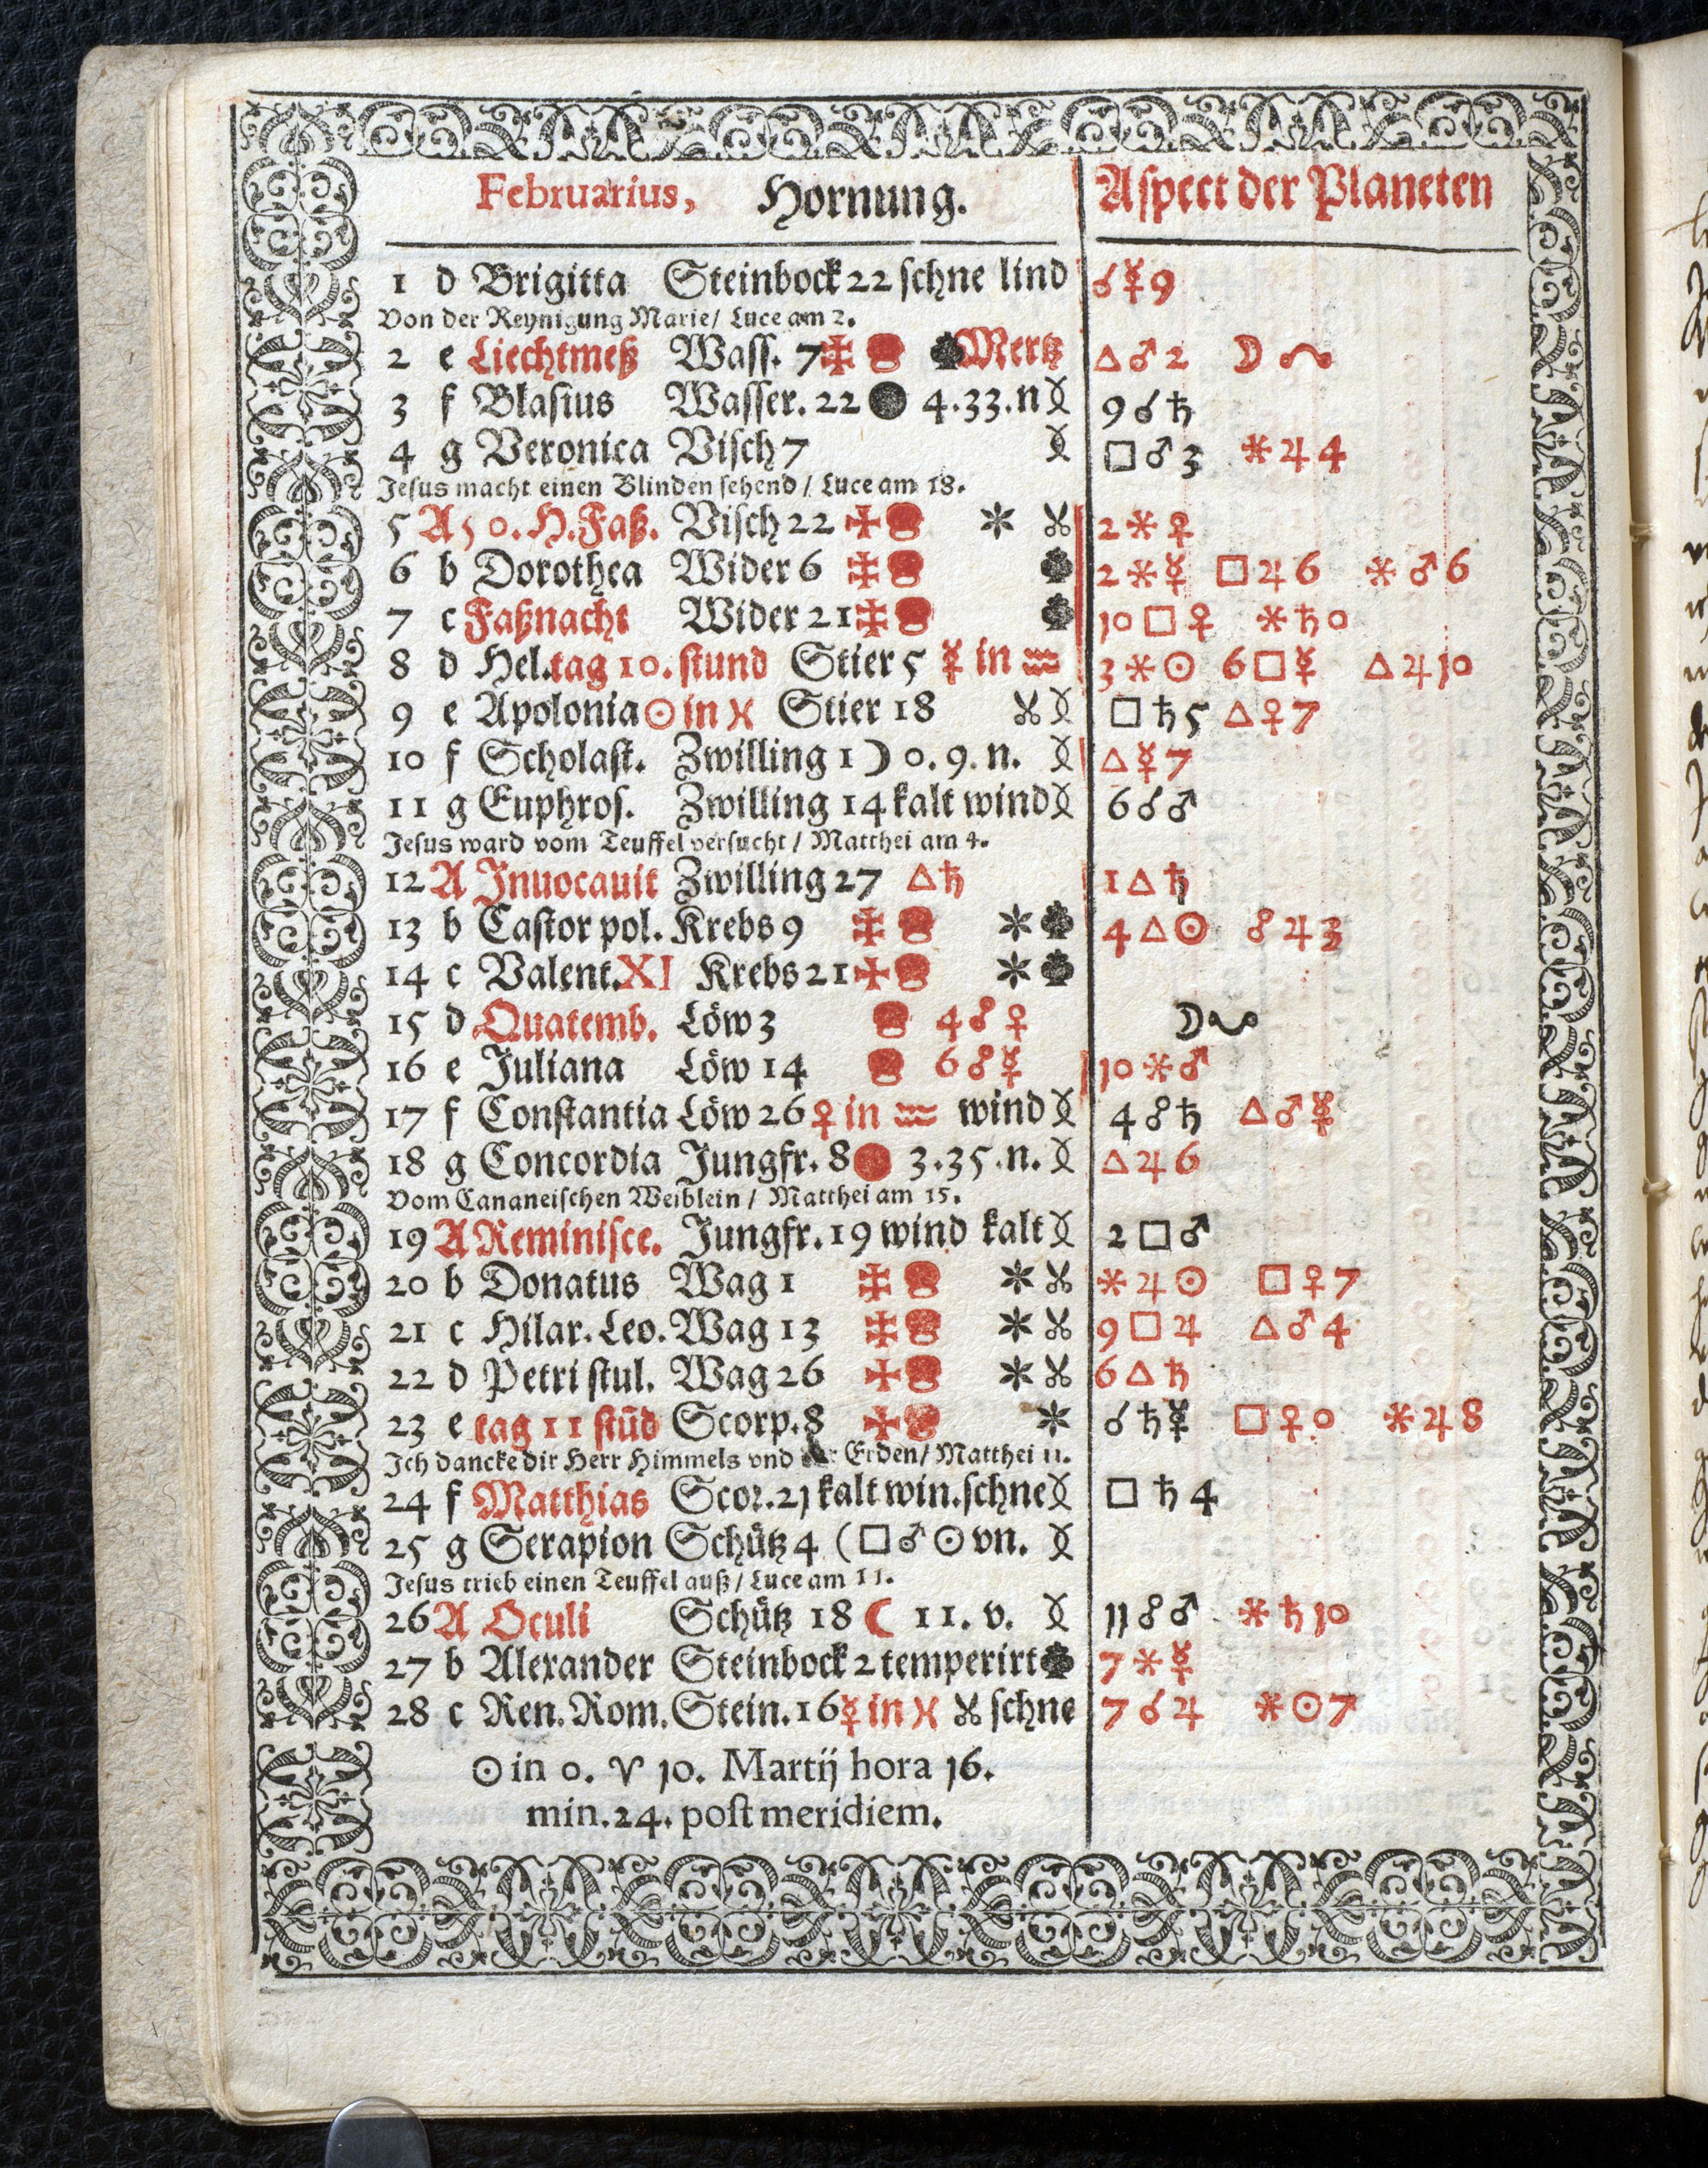 Februarius, Hornung. Aspect der Planeten
1 d Brigitta Steinbock 22 schne lind ☌ ☿ 9
Von der Reynigung Marie/ Luce am 2.
2 e Liechtmeß Wass. 7 Mertz △ ♂ 2 ☽ ☊
3 f Blasius Wasser. 22 ● 4.33.n 9 ☌ ♄
4 g Veronica Visch 7 □ ♂ 3 ⚹ ♃ 4
Jesus macht einen Blinden sehend / Luce am 18.
5 A 50. H. Faß. Visch 22 2 ⚹ ♀
6 b Dorothea Wider 6 2 ⚹ ☿ □ ♃ 6 ⚹ ♂ 6
7 c Faßnacht Wider 21 10 □ ♀ ⚹ ♄ 0
8 d Hel. tag 10. stund Stier 5 ☿ in ♒ 3 ⚹ ☉ 6 □ ☿ △ ♃ 10
9 e Apolonia ☉ in ♓ Stier 18 □ ♄ 5 △ ♀ 7
10 f Scholast. Zwilling 1 ☽ 0. 9. n. △ ☿ 7
11 g Euphros. Zwilling 14 kalt wind 6 ☌ ♂
Jesus ward vom Teuffel versucht / Matthei am 4.
12 A Inuocauit Zwilling 27 △ ♄ 1 △ ♄
13 b Castor pol. Krebs 9 4 △ ☉ ☍ ♃ 3
14 c Valent. XI Krebs 21
15 d Quatemb. Löw 3 4 ☍ ♀ ☽ ☋
16 e Juliana Löw 14 6 ☍ ☿ 10 ⚹ ♂
17 f Constantia Löw 26 ♀ in ♒ wind 4 ☍ ♄ △ ♂ ☿
18 g Concordia Jungfr. 8 3.35.n. △ ♃ 6
Vom Cananeischen Weiblein / Matthei am 15.
19 A Reminisce. Jungfr. 19 wind kalt 2 □ ♂
20 b Donatus Wag 1 ⚹ ♃ ☉ □ ♀ 7
21 c Hilar. Leo. Wag 13 9 □ ♃ △ ♂ 4
22 d Petri stul. Wag 26 6 △ ♄
23 e tag 11 stūd Scorp. 8 ☌ ♄ ☿ □ ♀ 0 ⚹ ♃ 8
Ich dancke dir Herr Himmels vnd der Erden/ Matthei 11.
24 f Matthias Scor. 21 kalt win. schne □ ♄ 4
25 g Serapion Schütz 4 (□ ♂ ☉ vn.
Jesus trieb einen Teuffel auß / Luce am 11.
26 A Oculi Schütz 18 ☾ 11. v. 11 ☍ ♂ ⚹ ♄ 10
27 b Alexander Steinbock 2 temperirt 7 ⚹ ☿
28 c Ren. Rom. Stein. 16 ☿ in ♓ schne 7 ☌ ♃ ⚹ ☉ 7
☉ in 0. ♈ 10. Martij hora 16.
min. 24. post meridiem.